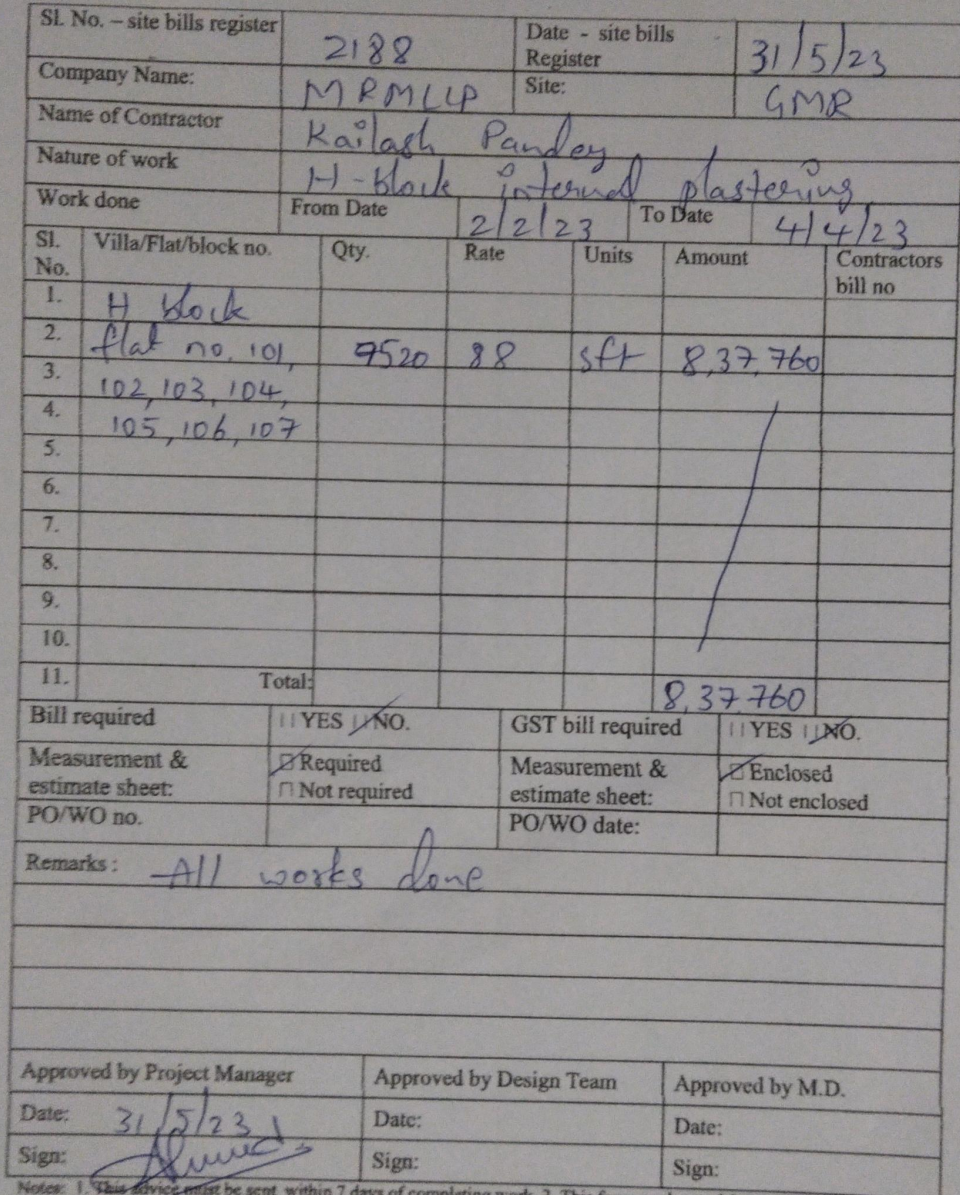 Sl. No. – site bills register 2188 Date - site bills Register 31/5/23
Company Name: MRMLLP Site: GMR
Name of Contractor Kailash Pandey
Nature of work H-block internal plastering
Work done From Date 2/2/23 To Date 4/4/23
Sl. No. Villa/Flat/block no. Qty. Rate Units Amount Contractors bill no
1. H block
2. flat no. 101, 9520 88 sft 8,37,760
3. 102, 103, 104,
4. 105, 106, 107
5.
6.
7.
8.
9.
10.
11. Total: 8,37,760
Bill required YES NO. GST bill required YES NO.
Measurement & estimate sheet: Required Measurement & estimate sheet: Enclosed
Not required Not enclosed
PO/WO no. PO/WO date:
Remarks : All works done
Approved by Project Manager Approved by Design Team Approved by M.D.
Date: 31/5/23 Date: Date:
Sign: Sign: Sign:
Notes: 1. This advice must be sent within 7 days of completing work 2. This